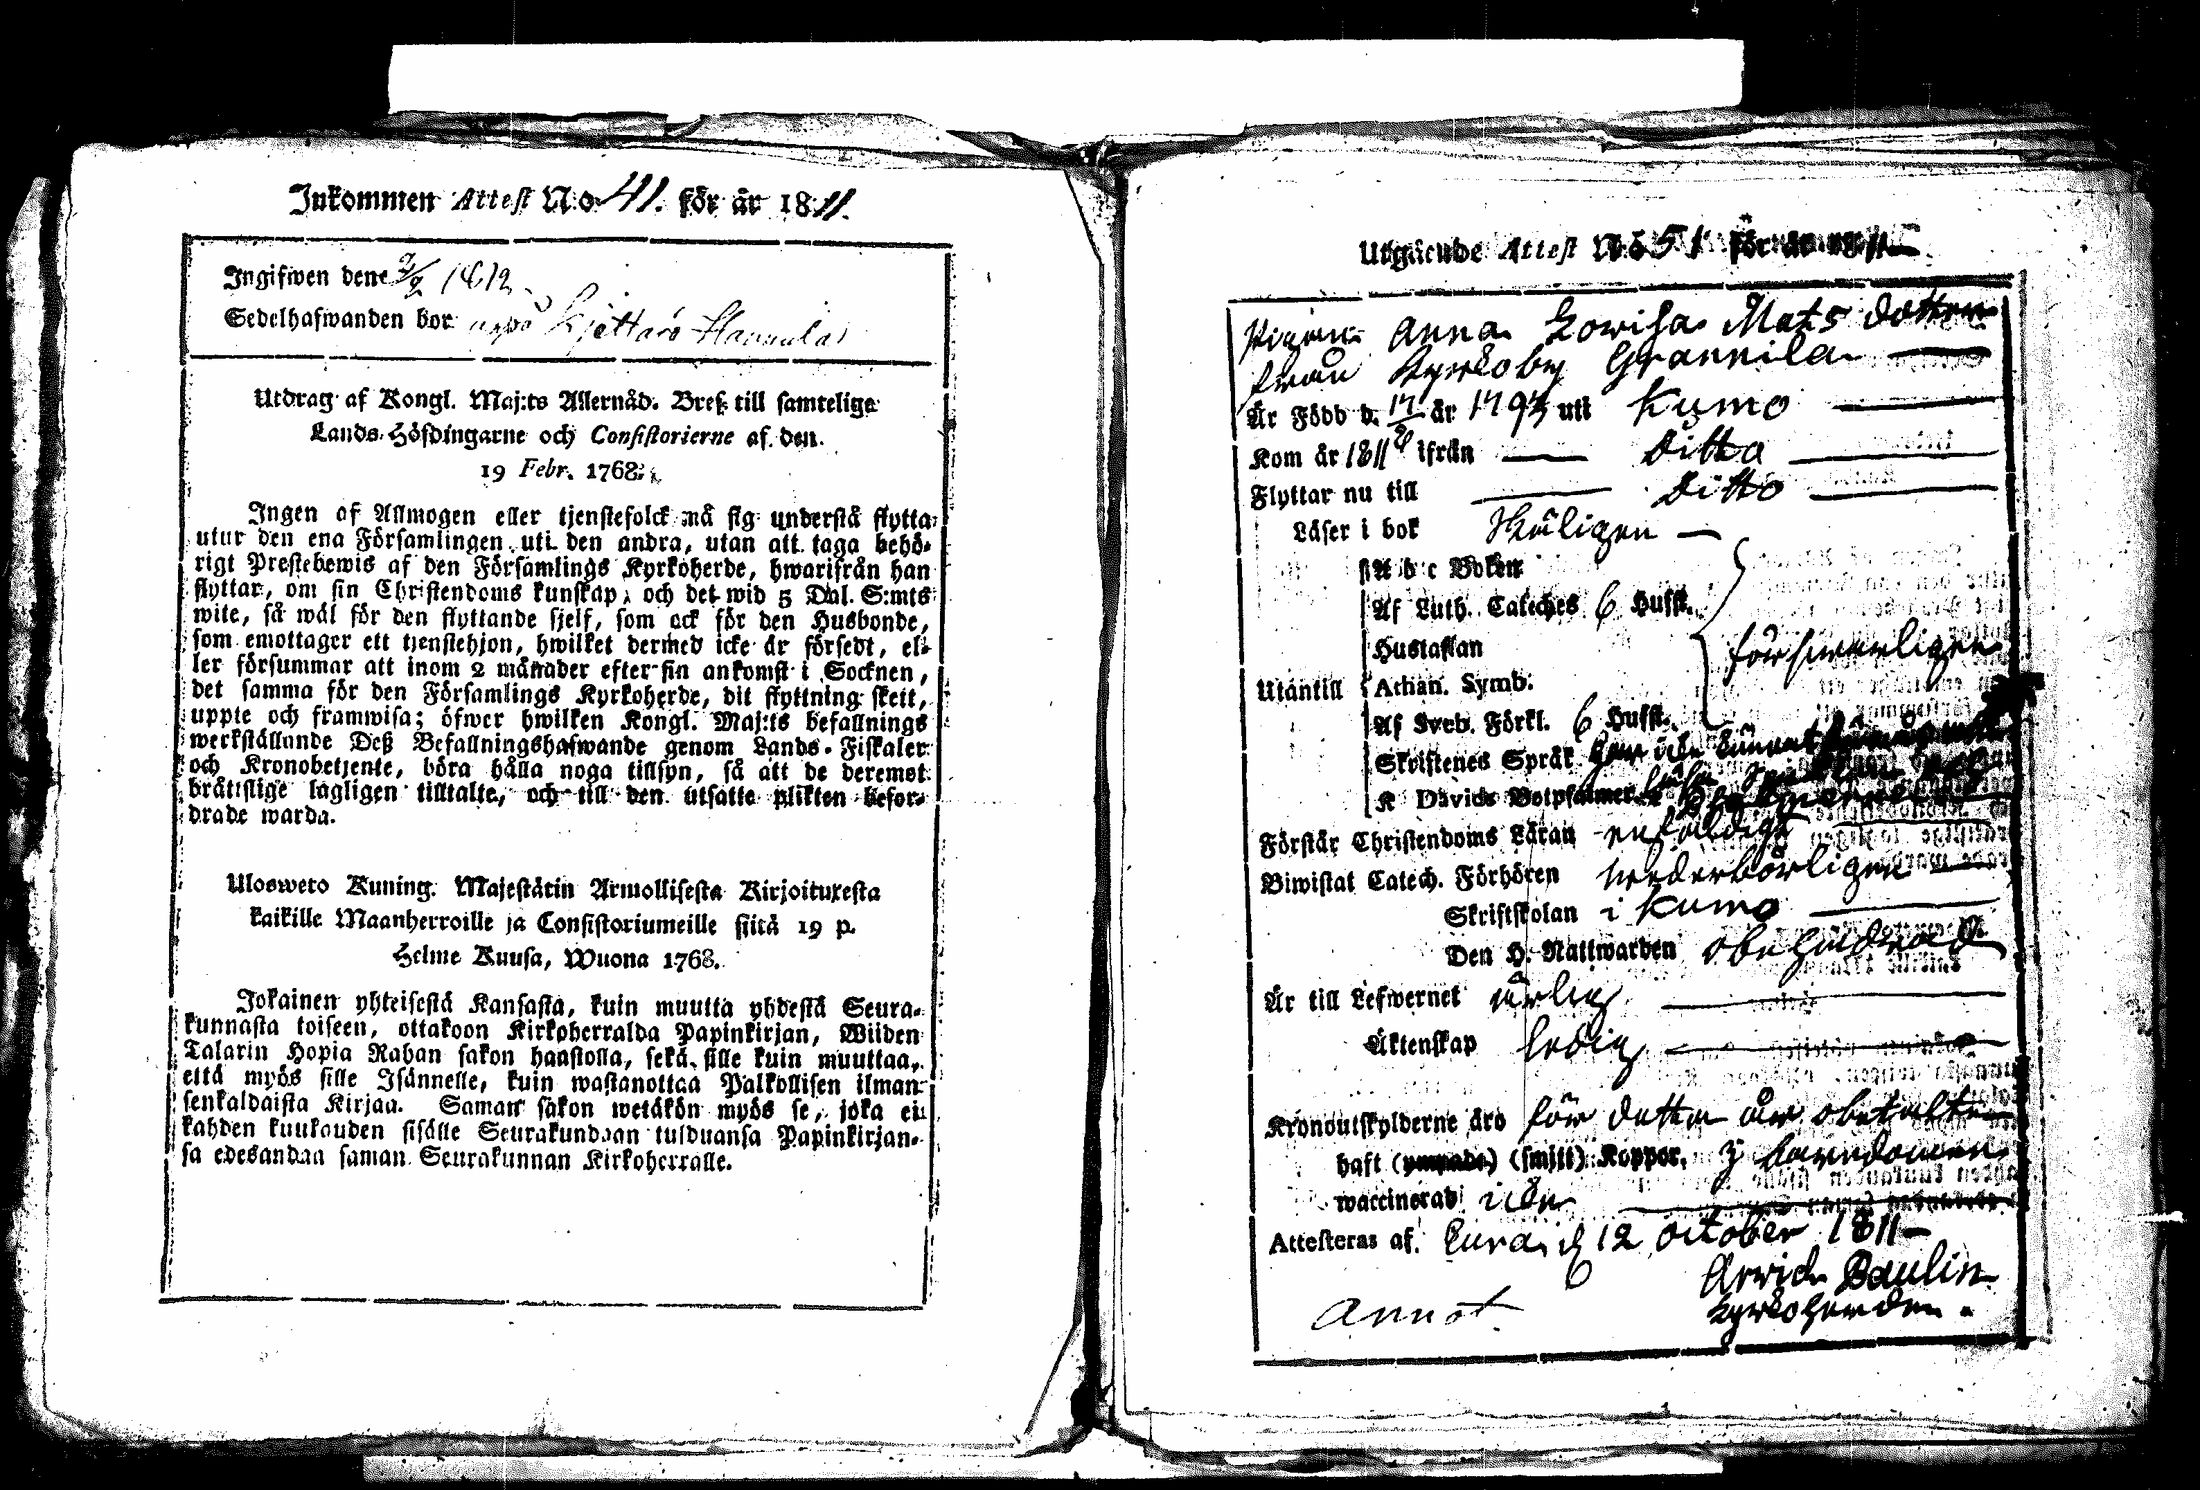 Inkommen Attest No 41. för år 1811.
Ingifwen den 2/2 1812.
Sedelhafwanden bor uppå Kjettarö Hannula
Utdrag af Kongl. Maj:ts Allernåd. Bref till samtelige
Lands-Höfdingarne och Consistorierne af den
19 Febr. 1768.
Ingen af Allmogen eller tjenstefolck må sig understå flytta
utur den ena Församlingen uti den andra, utan att taga behö-
rigt Prestebewis af den Församlings Kyrkoherde, hwarifrån han
flyttar, om sin Christendoms kunskap, och det wid 5 Dal. S:mts
wite, så wäl för den flyttande sjelf, som ock för den Husbonde,
som emottager ett tjenstehjon, hwilket dermed icke är försedt, el-
ler försummar att inom 2 månader efter sin ankomst i Socknen,
det samma för den Församlings Kyrkoherde, dit flyttning skett,
uppte och framwisa; öfwer hwilken Kongl. Maj:ts befallnings
werkställande Deß Befallningshafwande genom Lands-Fiskaler
och Kronobetjente, böra hålla noga tillsyn, så att de deremot
bråttslige lagligen tilltalte, och till den utsatte plikten befor-
drade warda.
Ulosweto Kuning. Majestätin Armollisesta Kirjoituxesta
kaikille Maanherroille ja Consistoriumeille siitä 19 p.
Helme Kuusa, Wuona 1768.
Jokainen yhteisestä Kansasta, kuin muutta yhdestä Seura-
kunnasta toiseen, ottakoon Kirkoherralda Papinkirjan, Wiiden
Talarin Hopia Rahan sakon haastolla, sekä sille kuin muuttaa,
että myös sille Isännelle, kuin wastanottaa Palkollisen ilman
senkaldaista Kirjaa. Saman sakon wetäkön myös se, joka ei
kahden kuukauden sisälle Seurakundaan tulduansa Papinkirjan-
sa edesandaa saman Seurakunnan Kirkoherralle.
Utgående Attest No 51 för år 1811
Pigan Anna Lowisa Mats dotter
från Kyrkoby Grannila
Är Född d. 17/ år 1793 uti Kumo
Kom år 1811 ifrån Ditto
Flyttar nu till Ditto
Läser i bok Skäligen
A b c Boken
Af Luth. Cateches 6 Hufst.
Hustaflan
Utantill Athan. Symb. försvarligen
Af Sveb. Förkl. 6 Hufst.
Skriftenes Språk har icke kunnat
K Davids Botpsalmer
Förstår Christendoms Läran enfaldigt
Biwistat Catech. Förhören wederbörligen
Skriftskolan i Kumo
Den H. Nattwarden obehindrad
Är till Lefwernet ärlig
Äktenskap ledig
Kronoutskylderne äro för detta år obetalte
haft (ympade) (smitt) Koppor. i barndomen
waccinerad icke
Attesteras af. Eura d 12 October 1811
Arvid Paulin
Kyrkoherden.
Annot.